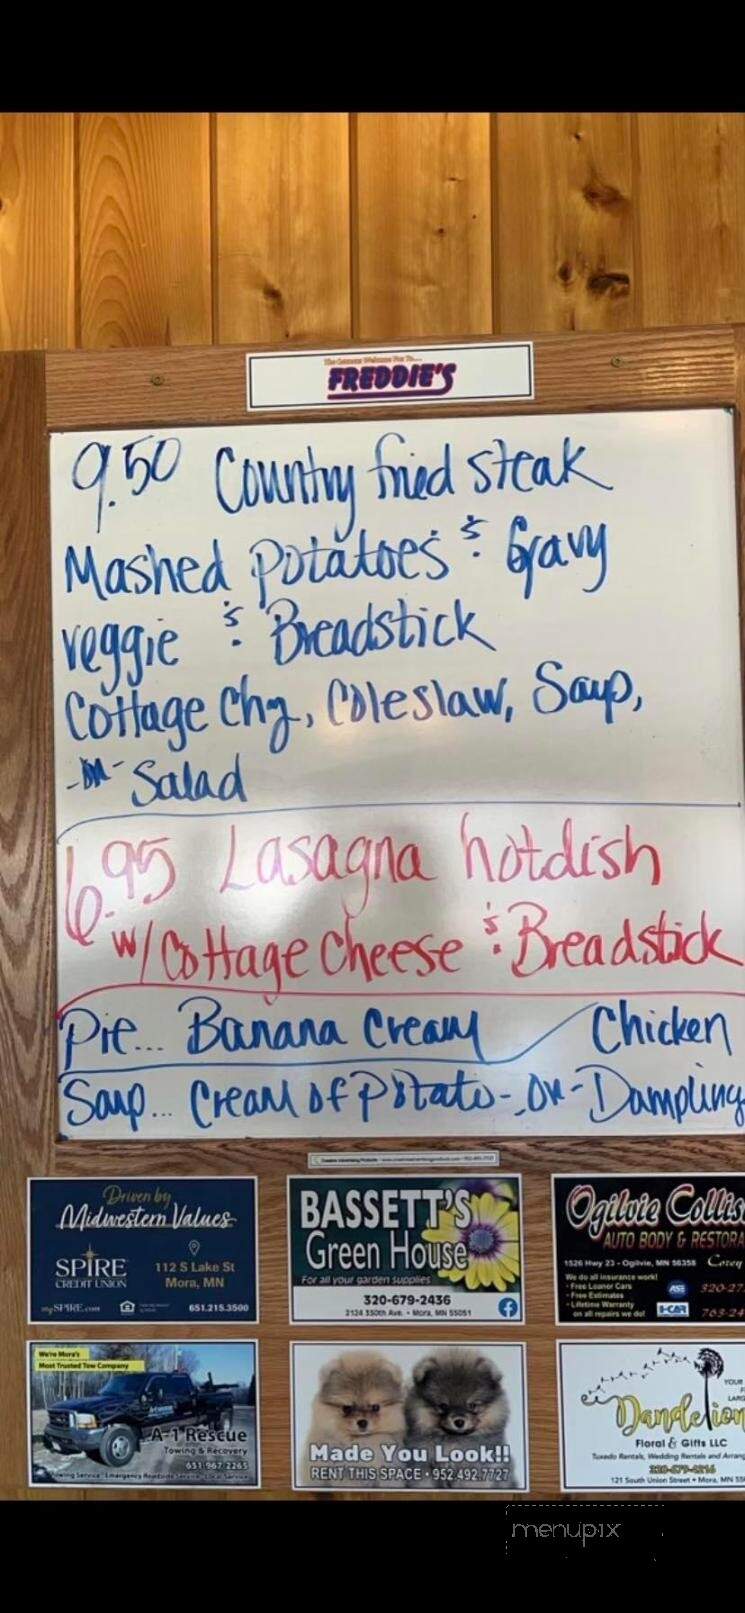 The Gomers Welcome You To...
FREDDIE'S
9.50 Country fried steak
Mashed Potatoes & Gravy
veggie & Breadstick
Cottage Chz, Coleslaw, Soup,
-or- Salad
6.95 Lasagna hotdish
w/ Cottage Cheese & Breadstick
Pie... Banana Cream
Chicken
Soup... Cream of Potato -or- Dumpling
Driven by
Midwestern Values
SPIRE
CREDIT UNION
112 S Lake St
Mora, MN
mySPIRE.com
651.215.3500
BASSETT'S
Green House
For all your garden supplies
320-679-2436
2124 350th Ave. • Mora, MN 55051
Ogilvie Collis
AUTO BODY & RESTORA
1526 Hwy 23 - Ogilvie, MN 56358 Corey
We do all insurance work!
• Free Loaner Cars
• Free Estimates
• Lifetime Warranty
on all repairs we do!
ASE
I-CAR
320-27
763-24
We're Mora's
Most Trusted Tow Company
A-1 Rescue
Towing & Recovery
651-967-2265
Towing Service - Emergency Roadside Service - Local Service
Made You Look!!
RENT THIS SPACE • 952.492.7727
YOUR
LAR
Dandelion
Floral & Gifts LLC
Tuxedo Rentals, Wedding Rentals and Arran
320-679-4216
121 South Union Street • Mora, MN 55
menupix